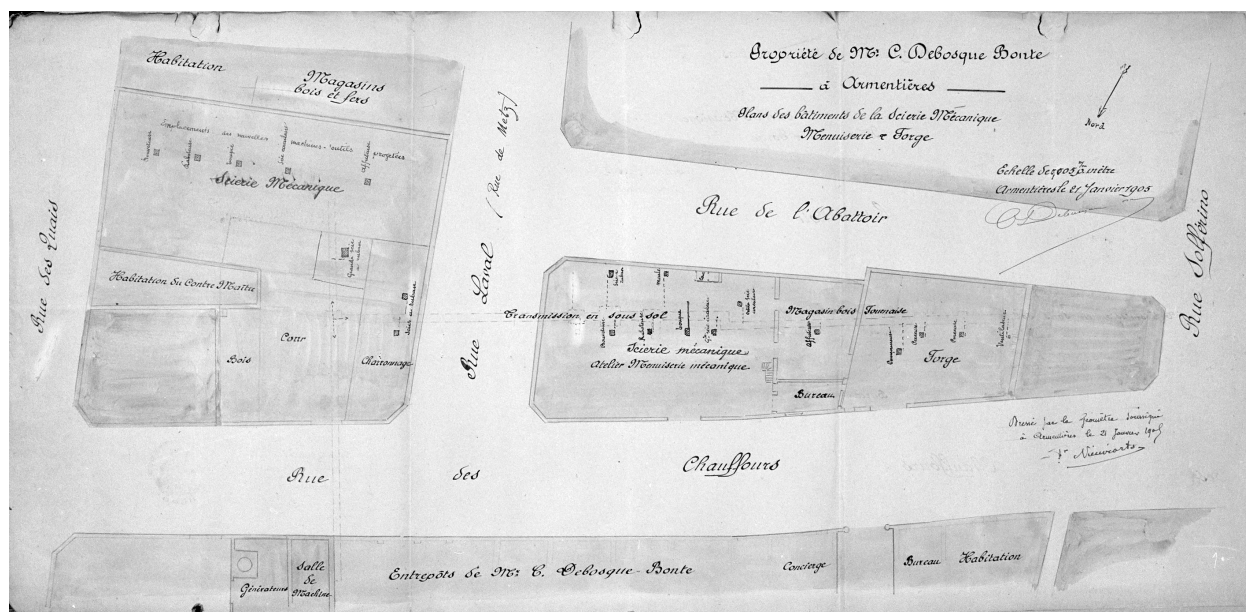 Propriété de Mr. C. Debosque Bonte
à Armentières
Plans des bâtiments de la Scierie Mécanique
Menuiserie & Forge
Nord
Echelle de 0,005 m/m à mètre
Armentières le 21 Janvier 1905
C Debosque
Habitation
Magasins
bois et fers
Emplacements des nouvelles machines-outils projetées
Scierie Mécanique
Rue des Quais
Habitation du Contre Maître
Bois
Cour
Charronnage
Rue Laval (Rue de Metz)
Rue de l'Abattoir
Rue Solférino
Transmission en sous sol
Scierie mécanique
Atelier Menuiserie mécanique
Magasin bois
Affûteuse
Bureau
Fournaise
Forge
Dressé par le géomètre soussigné
à Armentières le 21 Janvier 1905
Rue des Chauffours
Générateurs
Salle
de
Machine
Entrepôts de Mr. C. Debosque-Bonte
Concierge
Bureau
Habitation